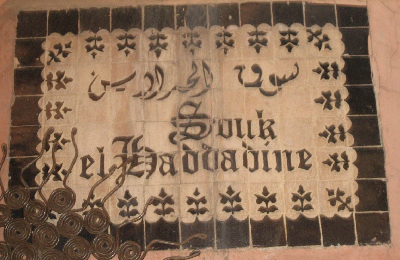 سوق الحدادين
Souk
el Haddadine